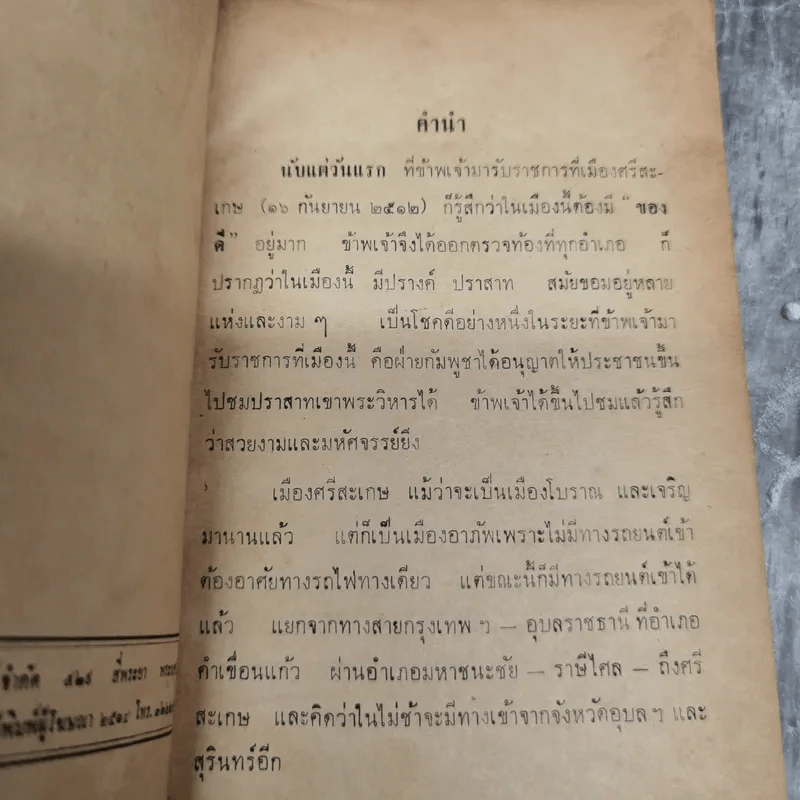 คำนำ
นับแต่วันแรก ที่ข้าพเจ้ามารับราชการที่เมืองศรีสะ-
เกษ (๑๖ กันยายน ๒๕๑๒) ก็รู้สึกว่าในเมืองนี้ต้องมี “ของ
ดี” อยู่มาก ข้าพเจ้าจึงได้ออกตรวจท้องที่ทุกอำเภอ ก็
ปรากฏว่าในเมืองนี้ มีปรางค์ ปราสาท สมัยขอมอยู่หลาย
แห่งและงาม ๆ เป็นโชคดีอย่างหนึ่งในระยะที่ข้าพเจ้ามา
รับราชการที่เมืองนี้ คือฝ่ายกัมพูชาได้อนุญาตให้ประชาชนขึ้น
ไปชมปราสาทเขาพระวิหารได้ ข้าพเจ้าได้ขึ้นไปชมแล้วรู้สึก
ว่าสวยงามและมหัศจรรย์ยิ่ง
เมืองศรีสะเกษ แม้ว่าจะเป็นเมืองโบราณ และเจริญ
มานานแล้ว แต่ก็เป็นเมืองอาภัพเพราะไม่มีทางรถยนต์เข้า
ต้องอาศัยทางรถไฟทางเดียว แต่ขณะนี้ก็มีทางรถยนต์เข้าได้
แล้ว แยกจากทางสายกรุงเทพ ฯ – อุบลราชธานี ที่อำเภอ
คำเขื่อนแก้ว ผ่านอำเภอมหาชนะชัย – ราษีไศล – ถึงศรี
สะเกษ และคิดว่าในไม่ช้าจะมีทางเข้าจากจังหวัดอุบล ฯ และ
สุรินทร์อีก
จำกัด